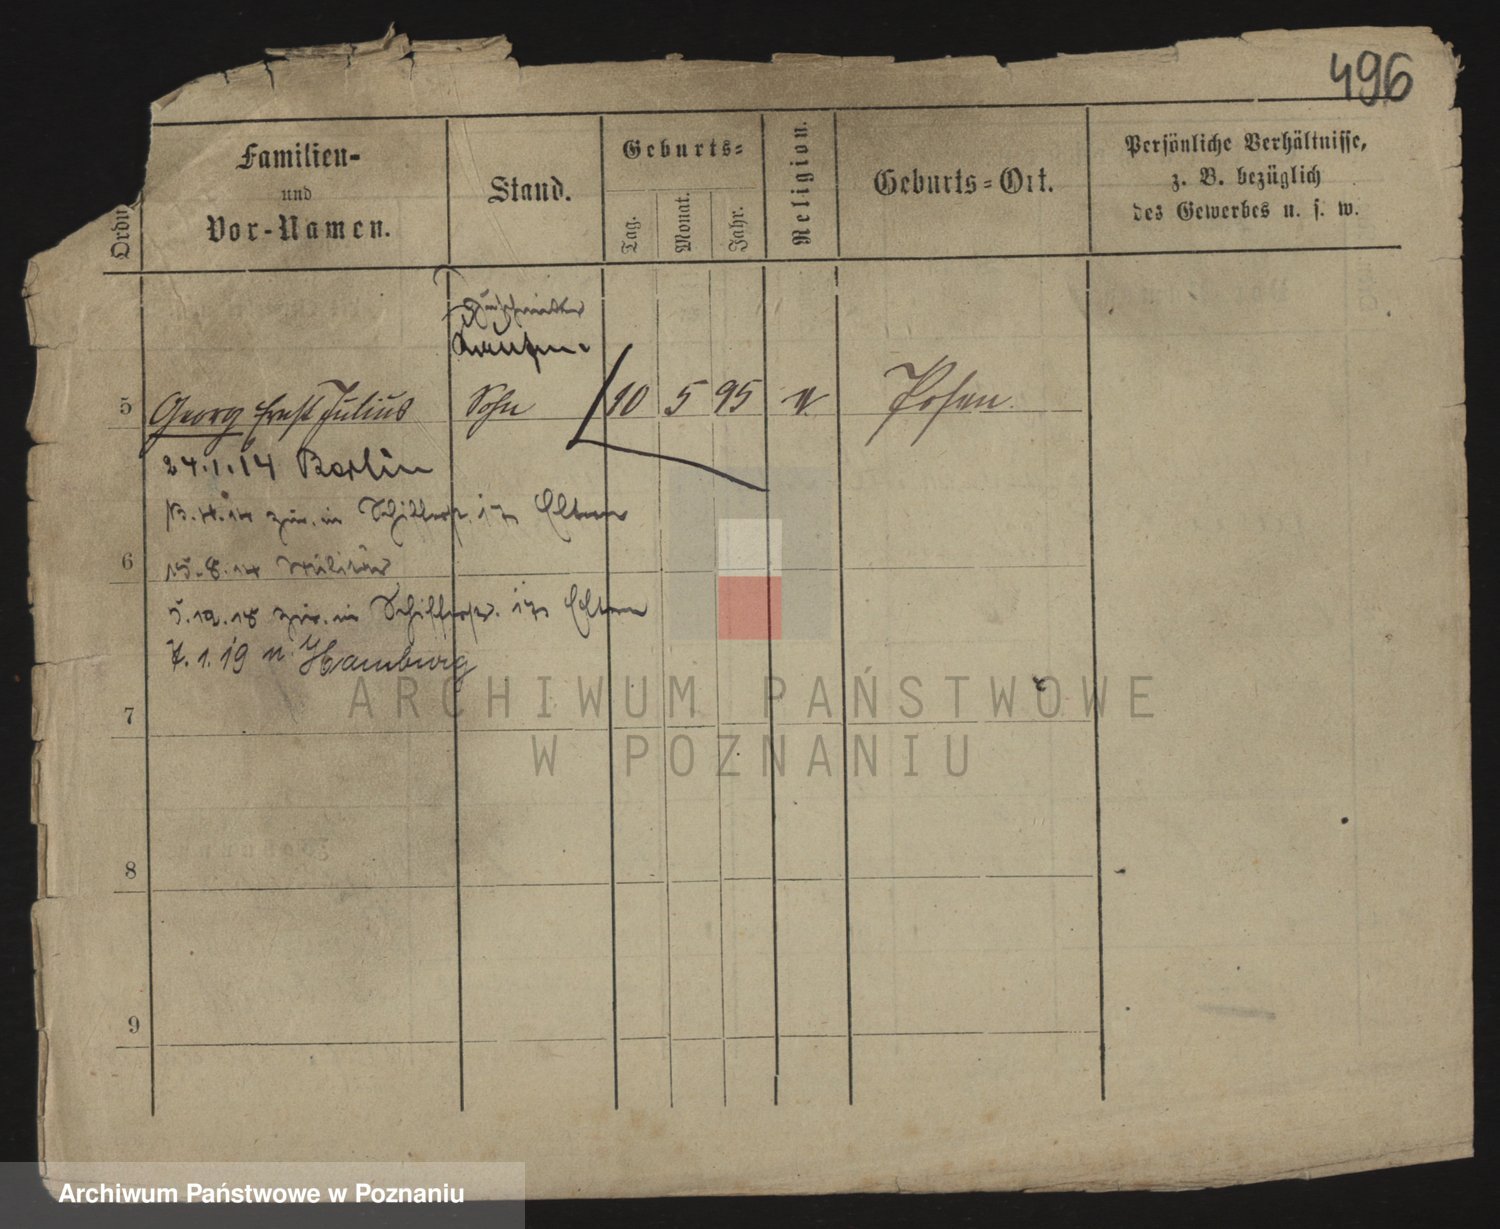 496
Ordn
Familien-
und
Vor-Namen.
Stand.
Geburts-
Tag.
Monat.
Jahr.
Religion.
Geburts-Ort.
Persönliche Verhältnisse,
z. B. bezüglich
des Gewerbes u. s. w.
Kaufm.
5 Georg Ernst Julius Sohn 10 5 95 Posen.
24.1.14 Berlin
zur. in Schillerstr. 17 Eltern
6
15.8.14 Militär
zur. in Schillerstr. 17 Eltern
7.1.19 n Hamburg
7
8
9
ARCHIWUM PAŃSTWOWE
W POZNANIU
Archiwum Państwowe w Poznaniu